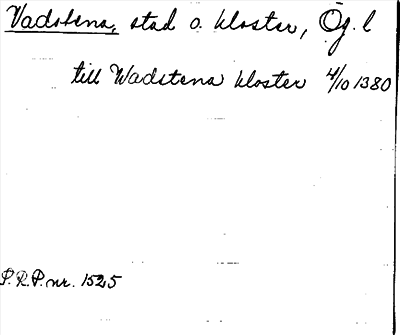 Vadstena, stad o. kloster, Ög. l
till Wadstena kloster 4/10 1380
P.R.P. nr. 1525